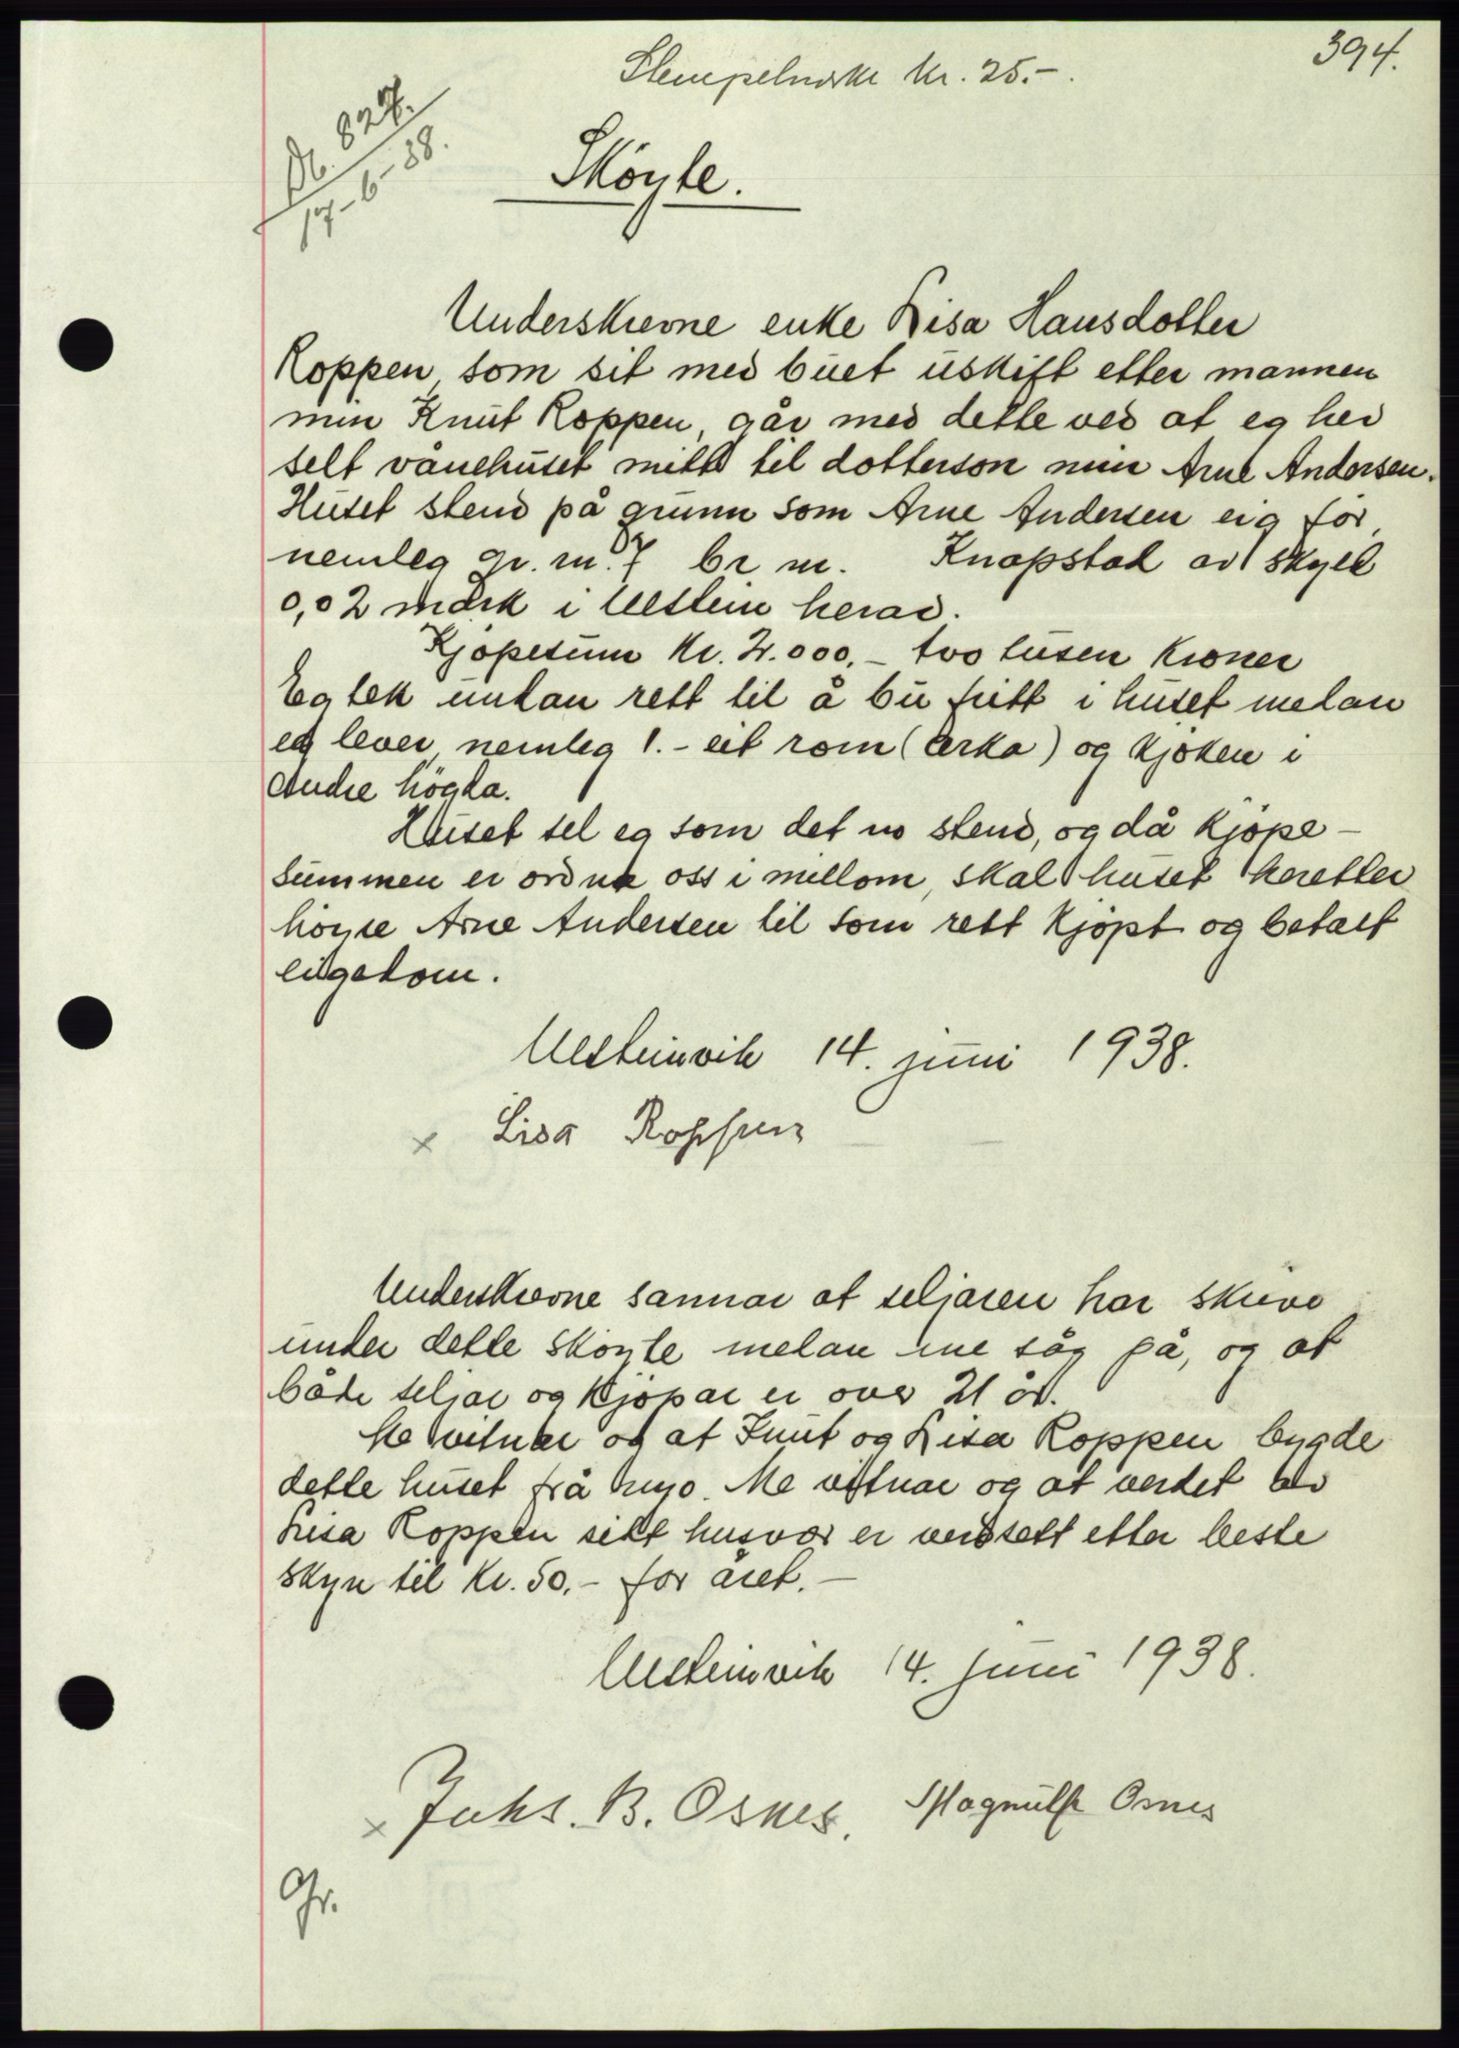 394.
Stempelmerke kr. 25.-.
Db. 827.
17-6-38.
Sköyte.
Underskrevne enke Lisa Hansdotter
Roppen, som sit med buet uskift etter mannen
min Knut Roppen, går med dette ved at eg her
selt vånehuset mitt til dotterson min Arne Andersen.
Huset stend på grunn som Arne Andersen eig för,
nemleg gr. nr. 7 br nr. Knapstad av skyld
0,02 mark i Ulstein herad.
Kjöpesum kr. 2.000.- tvo tusen kroner
Eg tek undan rett til å bu fritt i huset medan
eg lever, nemleg 1.- eit rom (arka) og kjöken i
andre högda.
Huset sel eg som det no stend, og då kjöpe-
summen er ordna oss i millom, skal huset heretter
höyre Arne Andersen til som rett kjöpt og betalt
eigedom.
Ulsteinvik 14. juni 1938.
x Lisa Roppen
Underskrevne sannar at seljaren har skrive
under dette sköyte medan me såg på, og at
både seljar og kjöpar er over 21 år.
Me vitnar og at Knut og Lisa Roppen bygde
dette huset frå nyo. Me vitnar og at verdet av
Lisa Roppen sitt husvær er verdsett etter beste
skyn til kr. 50.- for året.-
Ulsteinvik 14. juni 1938.
x Johs. B. Osnes. Magnulf Osnes
Gr.